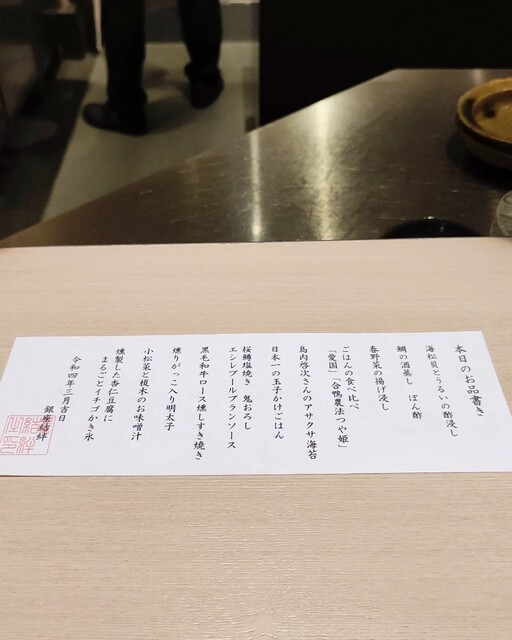 本日のお品書き
海松貝とうるいの酢浸し
鯛の酒蒸し　ぽん酢
春野菜の揚げ浸し
ごはんの食べ比べ
「愛国」「合鴨農法つや姫」
島内啓次さんのアサクサ海苔
日本一の玉子かけごはん
桜鱒塩焼き　鬼おろし
エシレブールブランソース
黒毛和牛ロース燻しすき焼き
燻りがっこ入り明太子
小松菜と榎木のお味噌汁
燻製した杏仁豆腐に
まるごとイチゴかき氷
令和四年三月吉日
銀座結絆